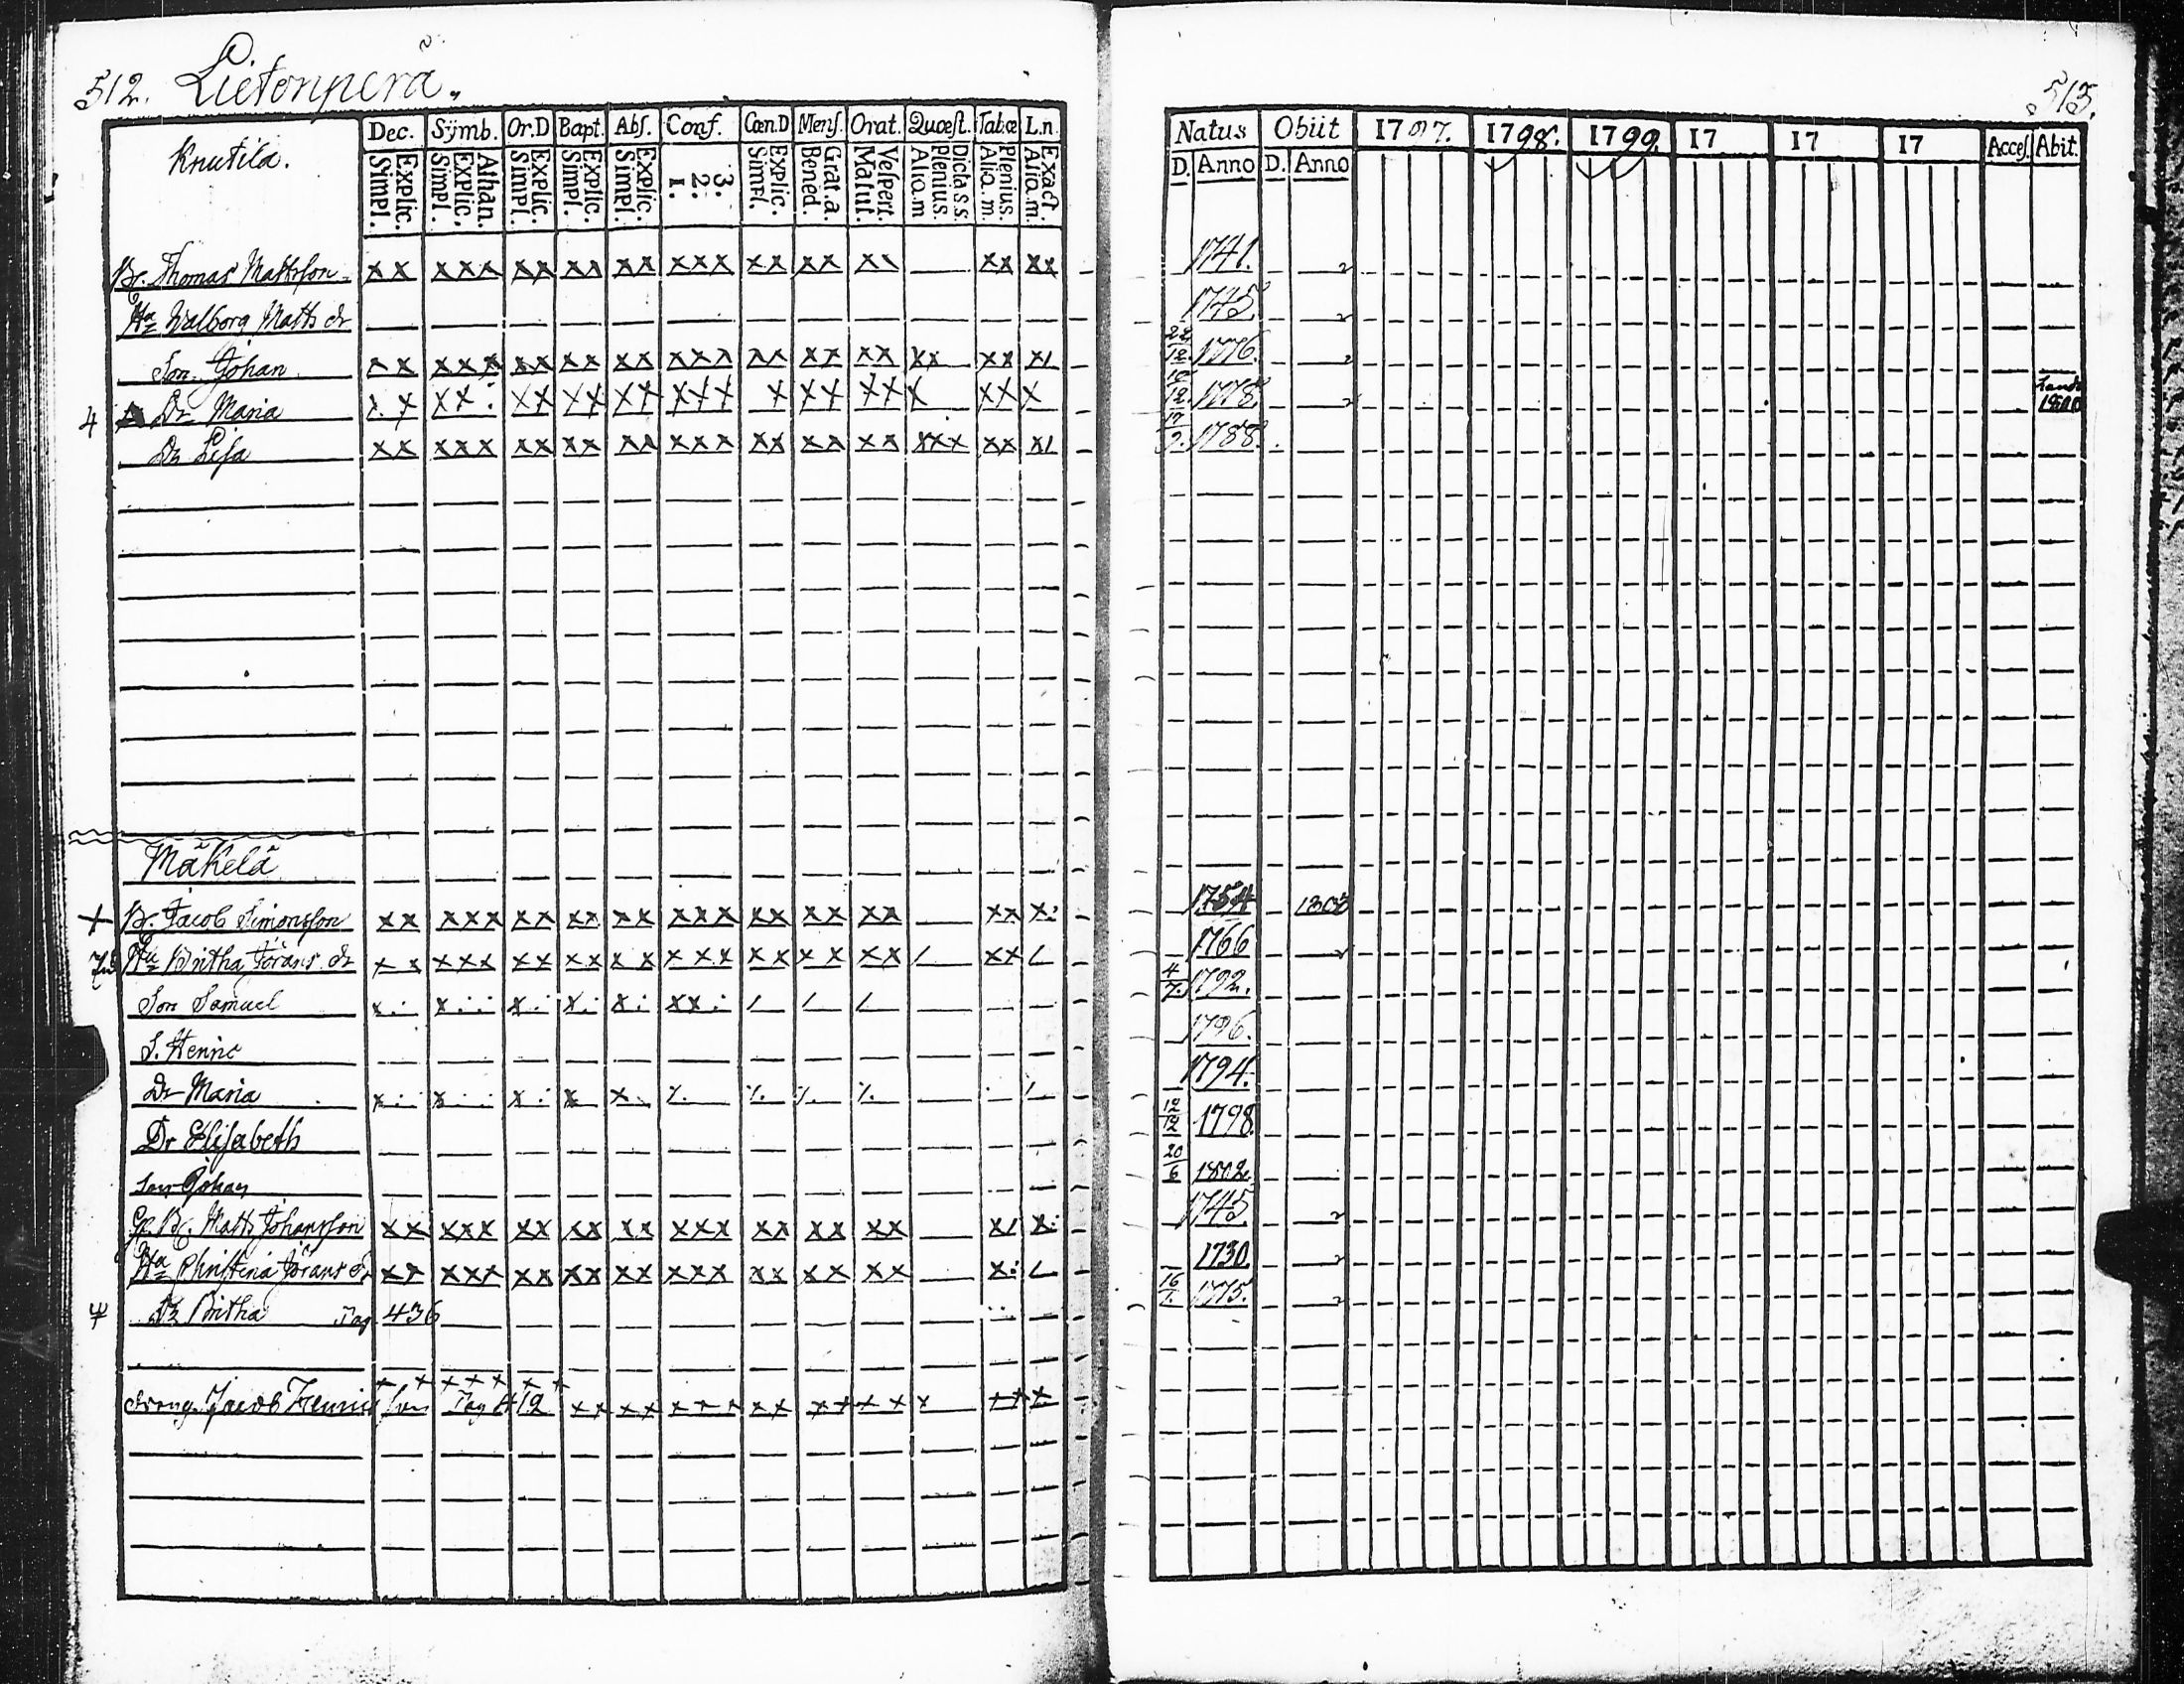 512. Lietonperä.
513.
Dec. Sÿmb. Or.D Bapt. Abſ. Conf. Cœn.D Menſ. Orat. Quœſt. Tabœ L.n
Natus Obiit 1797. 1798. 1799. 17 17 17 Acceſ. Abit.
Knutila.
Explic. Simpl. Athan. Explic. Simpl. Explic. Simpl. Explic. Simpl. Explic. Simpl. 3. 2. 1. Explic. Simpl. Grat.a. Bened. Veſpert. Matut. Dicta.s.s. Plenius. Aliq.m Plenius. Aliq.m. Exact. Aliq.m.
D. Anno D. Anno
Br. Thomas Mattsſon xx xxx xx xx xx xxx xx xx xx xx xx 1741.
Hu Walborg Matts dr 1745.
Son Johan xx xxx xx xx xx xxx xx xx xx xx xx x/ 22/12. 1776.
4 Dr Maria x x xx : xx xx xx xxx x xx xx x xx x 12. 1778. 1800
Dr Lisa xx xxx xx xx xx xxx xx xx xx xxx xx x/ 17/9. 1788.
Mäkelä
+ Br. Jacob Simonsſon xx xxx xx xx xx xxx xx xx xx xx x: 1754 1803
Hu Britha Jörans dr xx xxx xx xx xx xxx xx xx xx / xx / 1766
Son Samuel x. x.. x. x. x. xx. / / / 4/7. 1792.
S. Henric 1796.
Dr Maria x. x.. x. x x. 1794.
Dr Elisabeth 12/12 1798.
Son Johan 20/6 1802.
Br. Matts Johansſon xx xxx xx xx xx xxx xx xx xx x/ x: 1745.
Hu Christina Jörans dr xx xxx xx xx xx xxx xx xx xx x: / 1730.
Dr Britha Pag 436 16/1. 1775.
x x x x x x x
Dreng Jacob Henricsson Pag 412 xx xx xxx xx xx xx x xx x